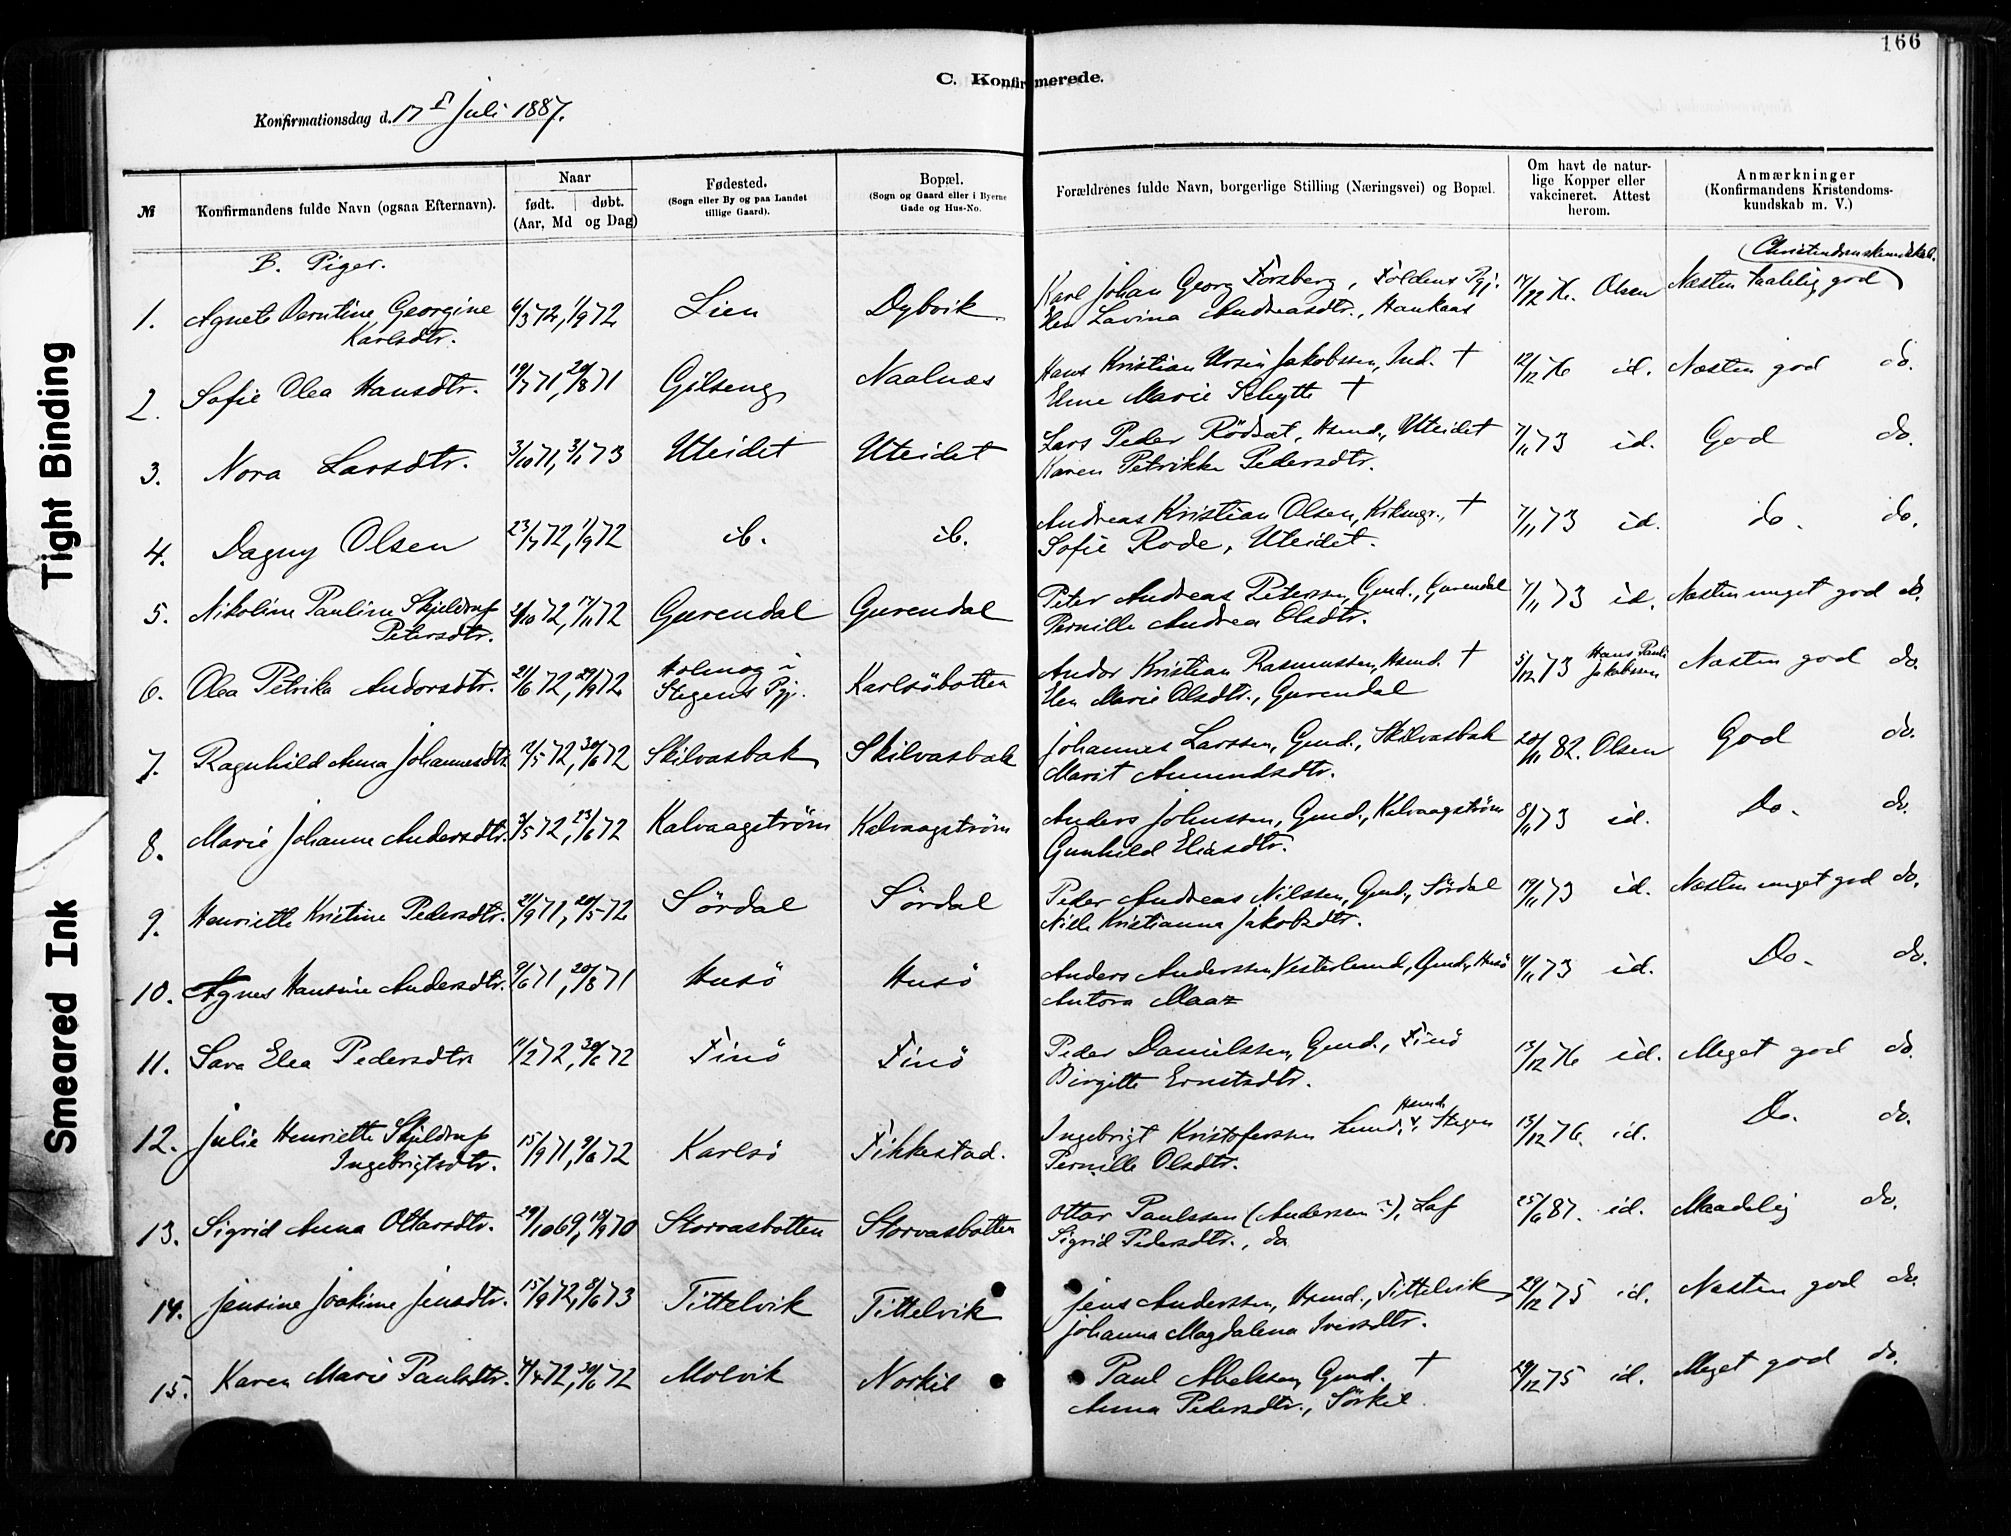 166
C. Konfirmerede.
Konfirmationsdag d. 17de Juli 1887.
№
Konfirmandens fulde Navn (ogsaa Efternavn).
Naar
født. døbt.
(Aar, Md og Dag)
Fødested.
(Sogn eller By og paa Landet
tillige Gaard).
Bopæl.
(Sogn og Gaard eller i Byerne
Gade og Hus-No.
Forældrenes fulde Navn, borgerlige Stilling (Næringsvei) og Bopæl.
Om havt de natur-
lige Kopper eller
vakcineret. Attest
herom.
Anmærkninger
(Konfirmandens Kristendoms-
kundskab m. V.)
B. Piger.
Christendomskundskab.
1. Agnete Georgine 6/3 72, 1/9 72 Lien Dybvik Karl Johan Georg Forsberg, Foldens Pgj. 76. Olsen Næsten taalelig god
Karlsdtr. Elen Lavina Andreasdtr., Haukaas
2. Sofie Olea Hansdtr. 19/7 71, 20/8 71 Gilseng Naalnæs Hans Kristian Ursin Jakobssen, Ind. † 12/12 76 id. Næsten god do.
Elene Marie Schytte †
3. Nora Larsdtr. 3/10 71, 3/1 73 Uteidet Uteidet Lars Peder Rödsat, Hsmd., Uteidet 7/11 73 id. God do.
Karen Petrikke Pedersdtr.
4. Dagny Olsen 23/7 72, 1/9 72 ib. ib. Andreas Kristian Olsen, † 7/11 73 id. do. do.
Sofie Rode, Uteidet.
5. Nikoline Pauline Skjeldrup 2/10 72, 17/11 72 Gurendal Gurendal Peter Andreas Peterssen, Gmd., Gurendal 7/11 73 id. Næsten meget god do.
Petersdtr. Pernille Andrea Olsdtr.
6. Olea Petrika Andorsdtr. 21/6 72, 29/9 72 Holmog i Karlsöbotten Andor Kristian Rasmussen, Hsmd. † 5/12 73 Hans Pauli Næsten god do.
Stegens Pgj. Elen Marie Olsdtr., Gurendal Jakobssen
7. Ragnhild Anna Johannesdtr. 12/5 72, 30/6 72 Skilvasbak Skilvasbak Johannes Larssen, Gmd., Skilvasbak 20/11 82. Olsen God do.
Marit Amundsdtr.
8. Marie Johanne Andersdtr. 3/5 72, 23/6 72 Kalvaagström Kalvaagström Anders Johnssen, Gmd., Kalvaagström 8/11 73 id. Do. do.
Gunhild Eliasdtr.
9. Henriette Kristine Pedersdtr. 21/9 71, 20/5 72 Sördal Sördal Peder Andreas Nilssen, Gmd., Sördal 19/11 73 id. Næsten meget god do.
Nille Kristianna Jakobsdtr.
10. Agnes Hansine Andersdtr. 9/6 71, 20/8 71 Husö Husö Anders Anderssen Vesterlund, Gmd., Husö 4/11 73 id. Do. do.
Antora Maaz
11. Sara Elea Pedersdtr. 11/2 72, 30/6 72 Finö Finö Peder Danielssen, Gmd., Finö 13/12 76 id. Meget god do.
Birgitte Ernstsdtr.
12. Julie Henriette Skjeldrup 15/9 71, 9/6 72 Karlsö Fikkestad. Ingebrigt Kristoferssen Lund, Hsmd. v. Stegen 13/12 76. id. Do. do.
Ingebrigtsdtr. Pernille Olsdtr.
13. Sigrid Anna Ottarsdtr. 29/10 69, 18/9 70 Storvasbotten Storvasbotten Ottar Paulssen (Andersen ?), Laf 25/6 87. id. Maadelig do.
Sigrid Pedersdtr., do
14. Jensine Joakime Jensdtr. 15/9 72, 8/6 73 Tittelvik Tittelvik Jens Anderssen, Hsmd., Tittelvik 29/12 75 id. Næsten god do.
Johanna Magdalena Iversdtr.
15. Karen Marie Paulsdtr. 4/4 72, 30/6 72 Molvik Norkil Paul Abelssen, Gmd. † 29/12 75 id. Meget god do.
Anna Pedersdtr., Sörkil
Tight Binding
Smeared Ink